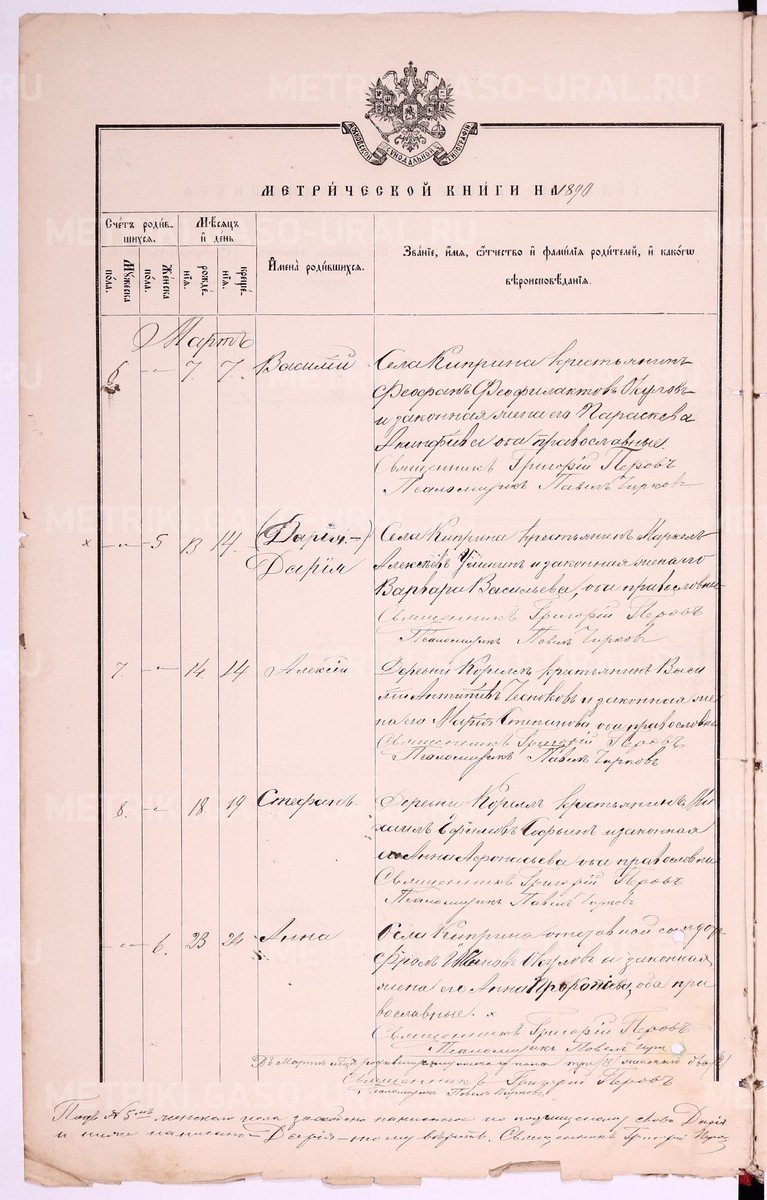 МОСКОВСКОЙ СѴНОДАЛЬНОЙ ТИПОГРАФІИ
МЕТРИЧЕСКОЙ КНИГИ НА 1890
Счетъ родившихся.
Мѣсяцъ и день
Имена родившихся.
Званіе, имя, отчество и фамилія родителей, и какого вѣроисповѣданія.
Мужеска пола.
Женска пола.
рожденія.
крещенія.
Мартъ
6 7. 7. Василій Села Киприна крестьянинъ
Феофанъ Феофилактовъ
и законная жена его Параскева
оба православные
Священникъ Григорій Перовъ
Псаломщикъ Павелъ Чирковъ
х 5 13 14. (Дарія.-) Села Киприна крестьянинъ Маркелъ
Дарія Алексѣевъ и законная жена его
Варвара Васильева, оба православны
Священникъ Григорій Перовъ
Псаломщикъ Павелъ Чирковъ
7. 14 14 Алексій Деревни крестьянинъ Васи
лій и законная же
на его Марія Степанова оба православны
Священникъ Григорій Перовъ
Псаломщикъ Павелъ Чирковъ
8. 18 19 Стефанъ. Деревни крестьянинъ Ми
хаилъ Ефимовъ и законная
его Анна оба православны
Священникъ Григорій Перовъ
Псаломщикъ Павелъ Чирковъ
6. 23 24 Анна Села Киприна отставной солдатъ
Фролъ Ивановъ Окуловъ и законная
жена его Анна Прокопіева, оба пра
вославные. х
Священникъ Григорій Перовъ
Псаломщикъ Павелъ
Въ Мартѣ мужескаго пола три (3) женскаго два (2)
Священникъ Григорій Перовъ
Псаломщикъ Павелъ Чирковъ
Подъ № 5мъ женскаго пола написанное по слово Дарія
и ниже написано Дарія - тому вѣрить. Священникъ Григорій Перов
METRIKI.GASO-URAL.RU